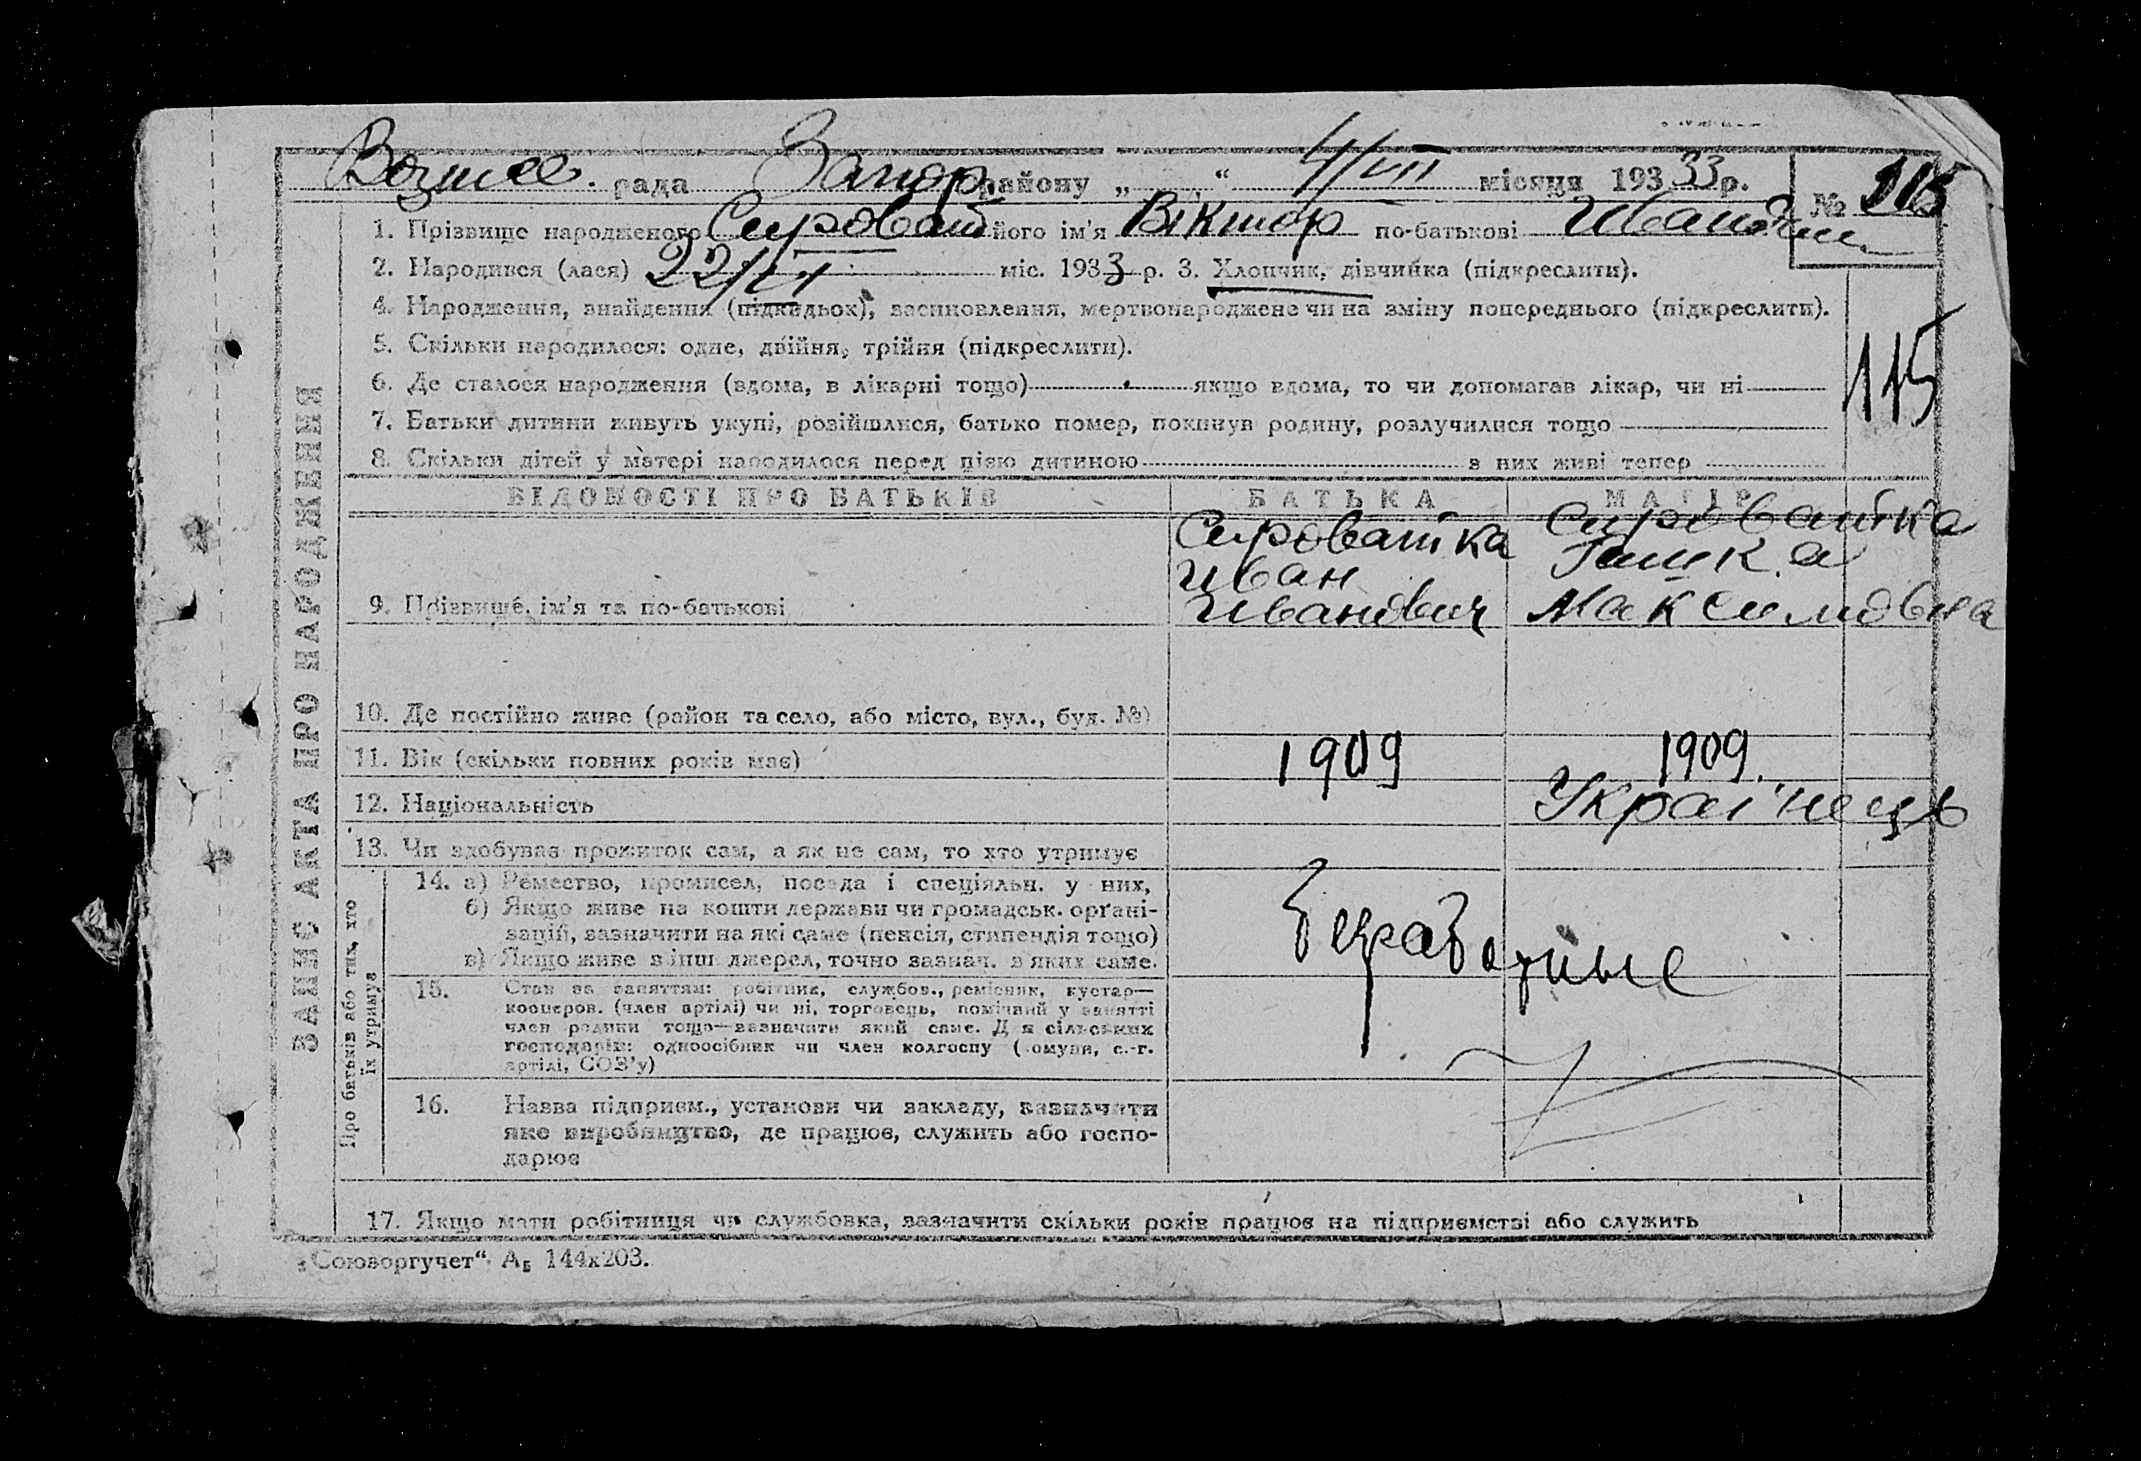 Вознес. рада Запор. району „ “ 4/VII місяця 193 33 р. № 115
1. Прізвище народженого Сироват його ім'я Віктор по-батькові Иванович
2. Народився (лася) 22/VI міс. 1933 р. 3. Хлопчик, дівчинка (підкреслити).
4. Народження, знайдення (підкидьок), васиновлення, мертвонароджене чи на зміну попереднього (підкреслити).
5. Скільки народилося: одне, двійня, трійня (підкреслити).
115
6. Де сталося народження (вдома, в лікарні тощо) якщо вдома, то чи допомагав лікар, чи ні
7. Батьки дитини живуть укупі, розійшлися, батько помер, покинув родину, розлучилися тощо
8. Скільки дітей у матері народилося перед цією дитиною з них живі тепер
ЗАПИС АКТА ПРО НАРОДЖЕННЯ
ВІДОМОСТІ ПРО БАТЬКІВ БАТЬКА МАТІР
Сироватка Сироватка
Иван
9. Прізвище, ім'я та по-батькові Иванович Максимовна
10. Де постійно живе (район та село, або місто, вул., буд. №)
11. Вік (скільки повних років має) 1909 1909.
12. Національність Українець
13. Чи здобував прожиток сам, а як не сам, то хто утримує
Про батьків або тих, хто їх утримує
14. а) Ремество, промисел, посада і спеціяльн. у них,
б) Якщо живе на кошти держави чи громадськ. орґані-
зацій, зазначити на які саме (пенсія, стипендія тощо)
в) Якщо живе з інш. джерел, точно зазнач. з яких саме.
15. Стан за заняттям: робітник, службов., ремісник, кустар—
кооперов. (член артілі) чи ні, торговець, помічний у занятті
член родини тощо—зазначити який саме. Для сільських
господарів: одноосібник чи член колгоспу (комуни, с.-г.
артілі, СОЗ'у)
16. Назва підприєм., установи чи закладу, зазначити
яке виробництво, де працює, служить або госпо-
дарює
17. Якщо мати робітниця чи службовка, зазначити скільки років працює на підприємстві або служить
„Союзоргучет“ А₅ 144х203.